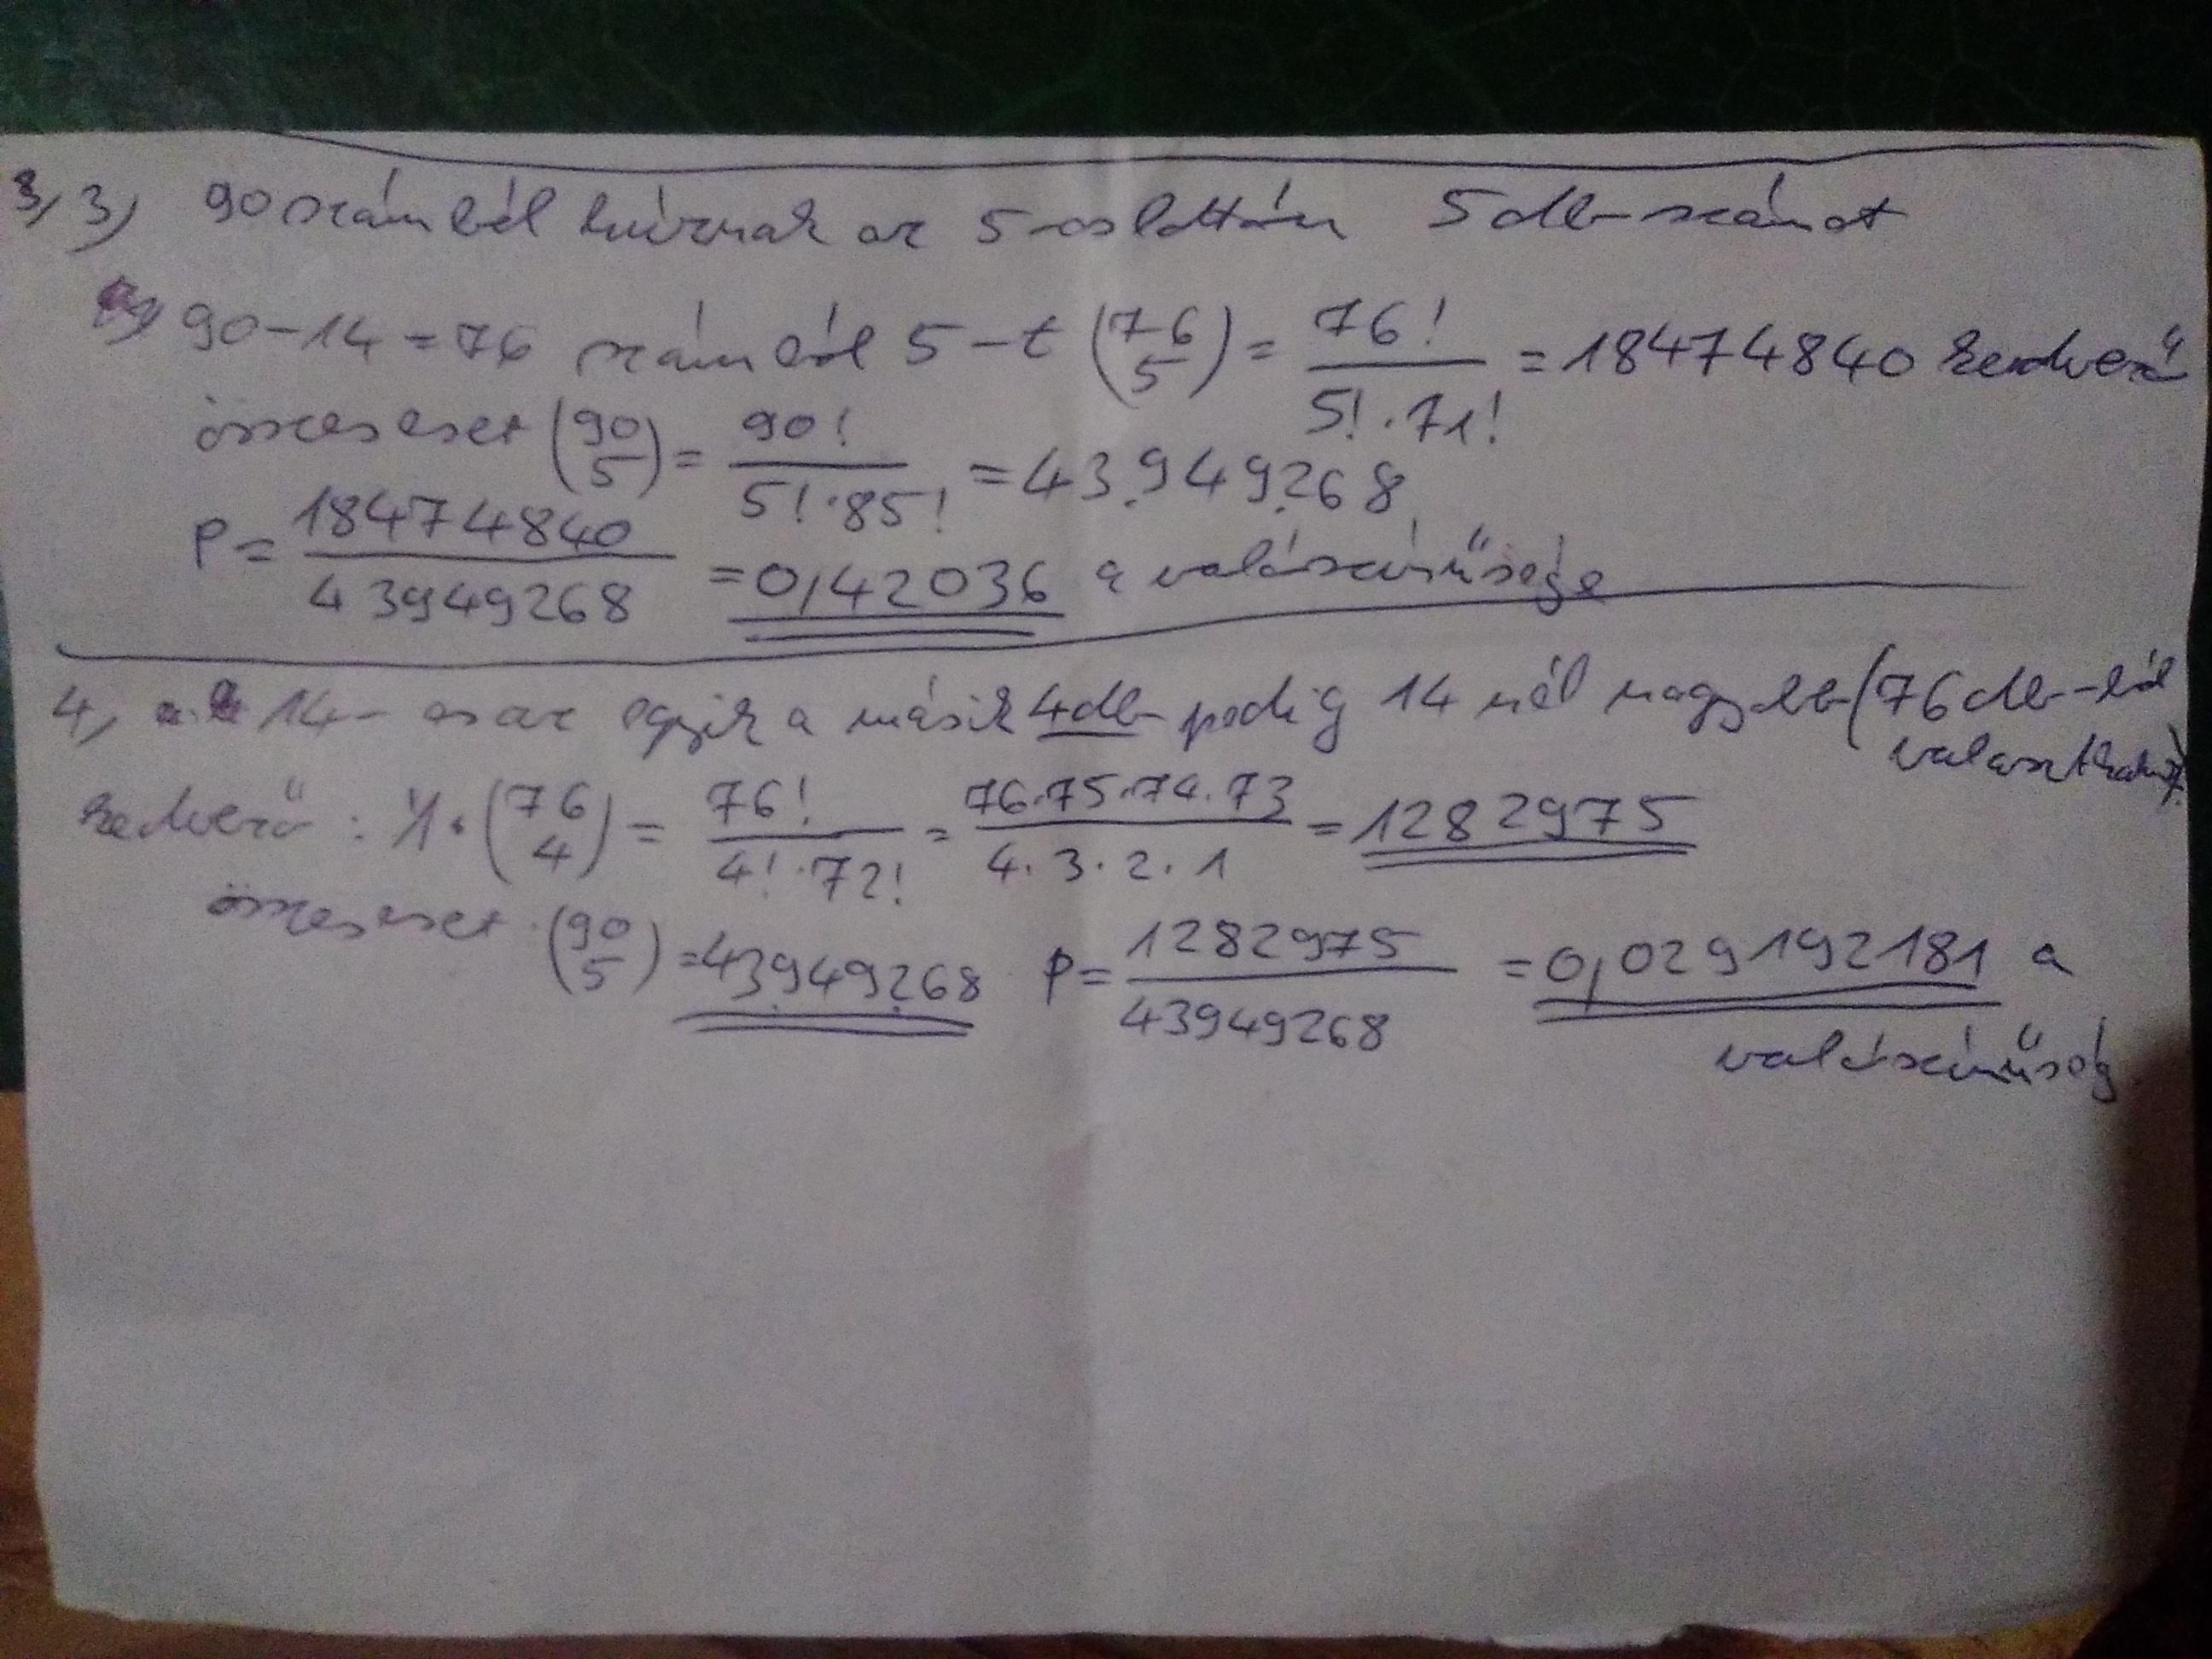 3, 3, 90 számból húznak az 5-ös lottón 5 db számot
90-14=76 számból 5-t (76 5) = 76! / 5!·71! = 18474840 kedvező
összes eset (90 5) = 90! / 5!·85! = 43.949.268
P = 18474840 / 43949268 = 0,42036 a valószínűsége
4, a 14-es az egyik a másik 4 db pedig 14 nél nagyobb (76 db-ból
választható)
kedvező: 1·(76 4) = 76! / 4!·72! = 76·75·74·73 / 4·3·2·1 = 1282975
összes eset (90 5) = 43.949.268 P = 1282975 / 43949268 = 0,029192181 a
valószínűség